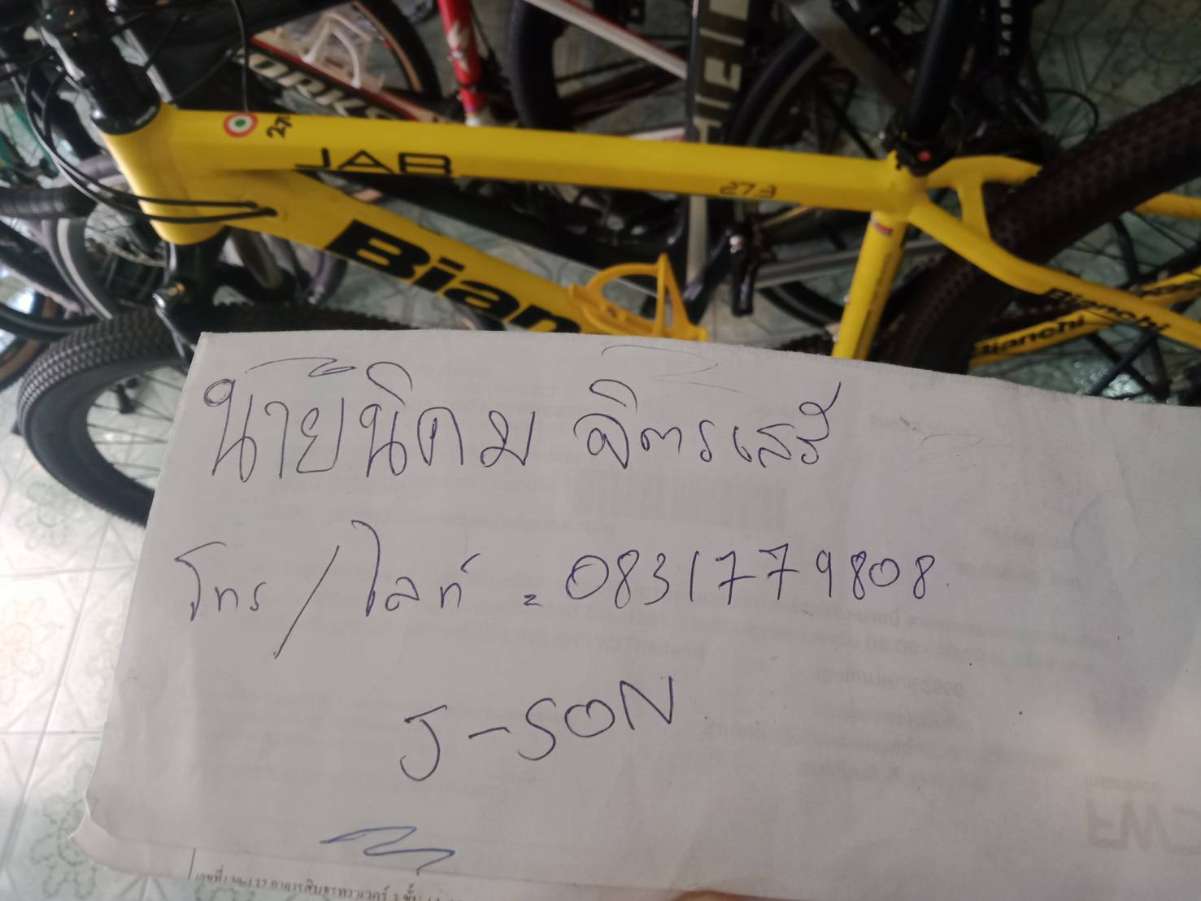 27
JAB
27.3
Bian
Bianchi
Bianchi
นายนิคม จิตรเสรี
โทร / ไลท์ = 0831779808
J-SON